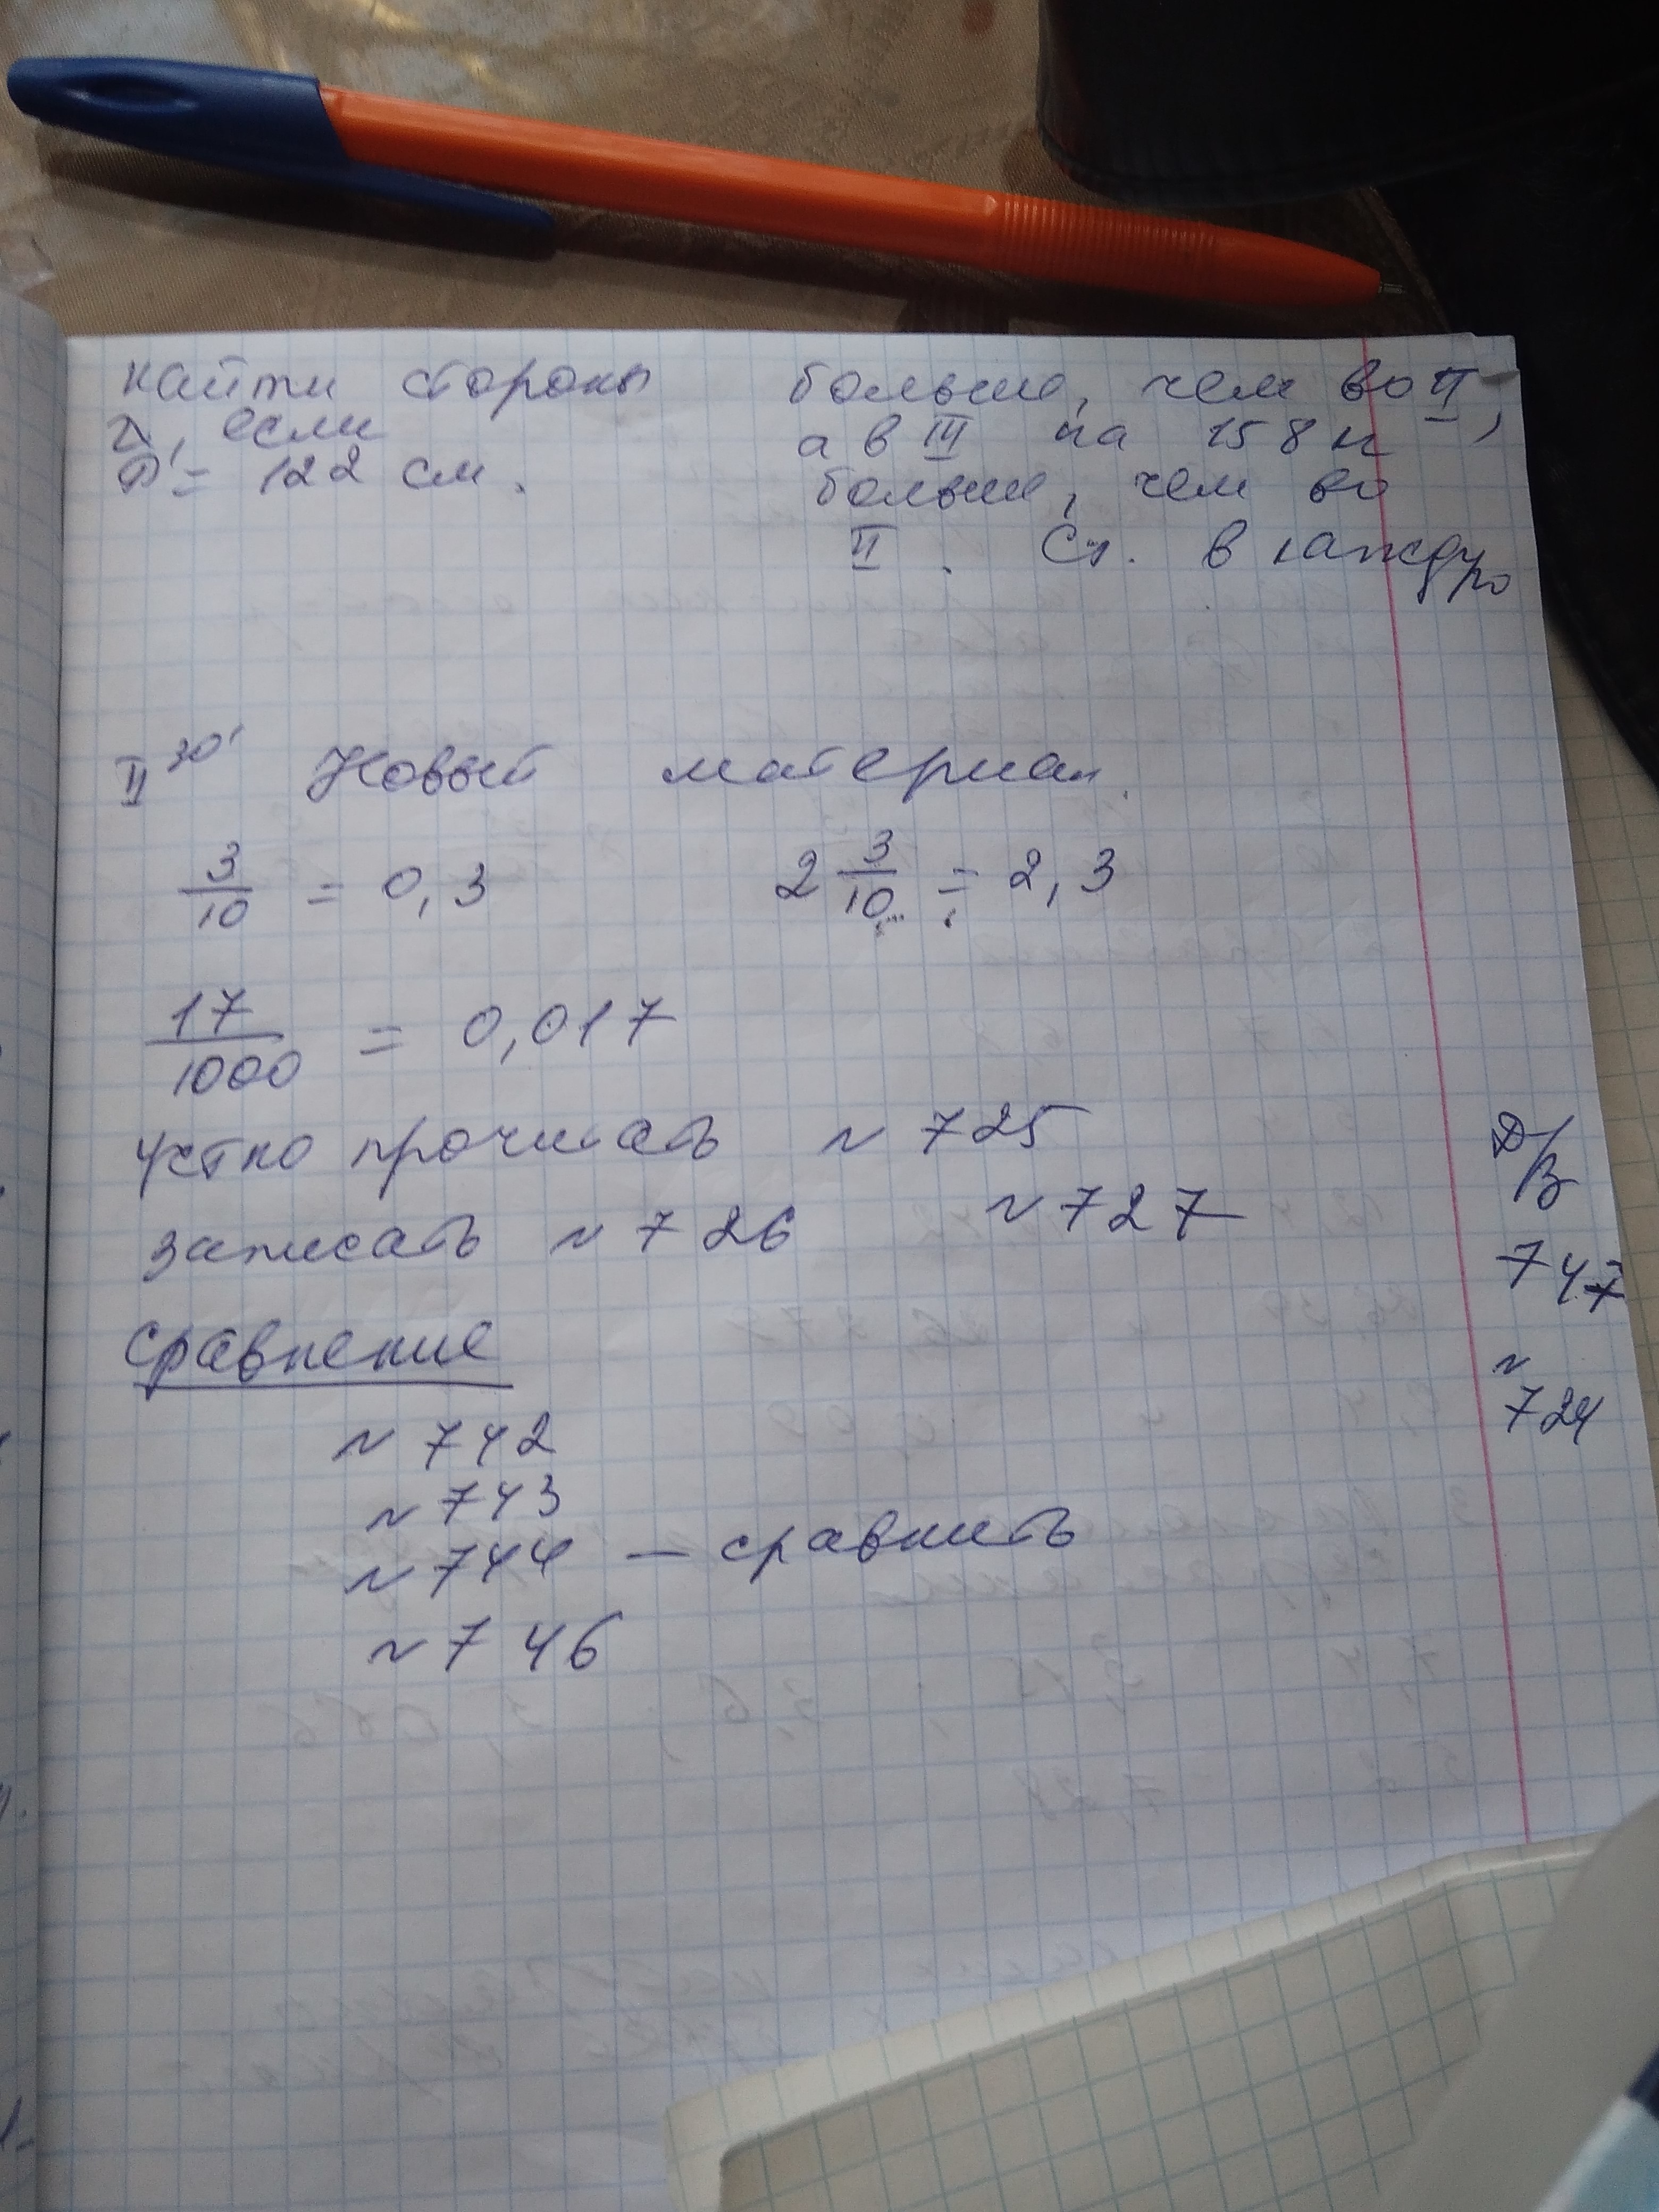 найти стороны
Δ, если
P = 122 см.
больше, чем во II,
а в III на 158 к
больше, чем во
II. Ск. в каждую
II 30' Новый материал.
3/10 = 0,3
2 3/10 = 2,3
17/1000 = 0,017
устно прочитать № 725
записать № 726 № 727
Сравнение
№ 742
№ 743
№ 744 — сравнить
№ 746
Д/з
747
№
724